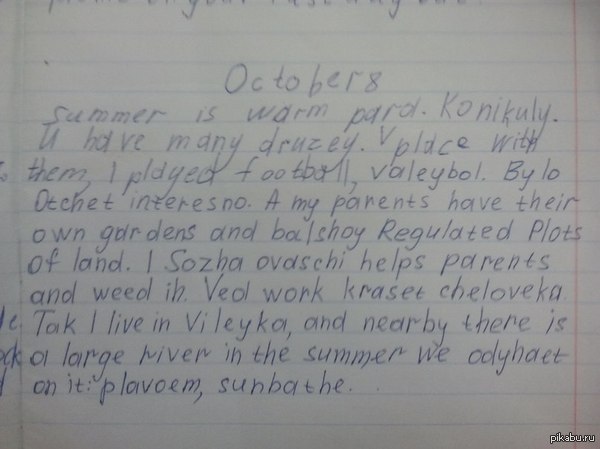 October 8
Summer is warm para. Konikuly.
U have many druzey. V place with
them, I played football, valeybol. Bylo
Otchet interesno. A my parents have their
own gardens and balshoy Regulated Plots
of land. I Sozha ovaschi helps parents
and weed ih. Ved work kraset cheloveka.
Tak I live in Vileyka, and nearby there is
a large river in the summer we odyhaet
on it: plavaem, sunbathe.
pikabu.ru